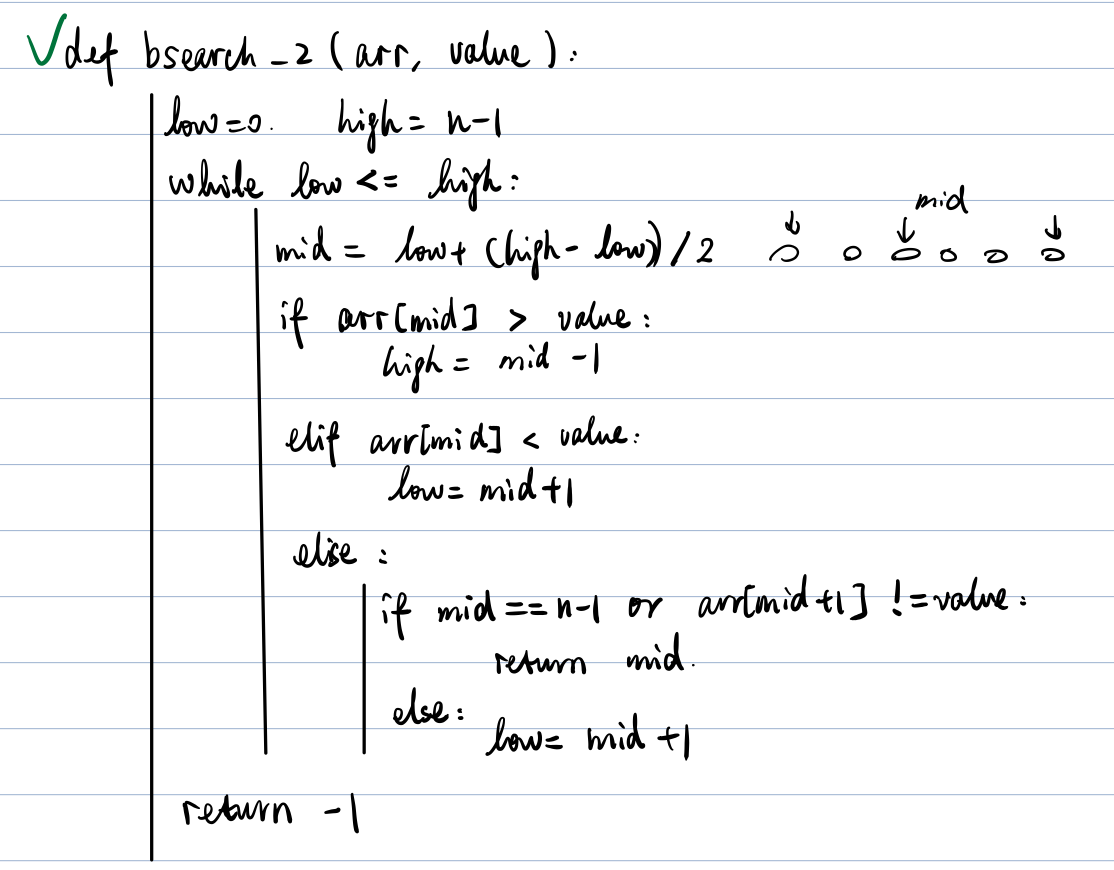 def bsearch_2 (arr, value):
low=0. high= n-1
while low <= high:
mid
mid = low+ (high- low)/2
if arr[mid] > value:
high = mid -1
elif arr[mid] < value:
low= mid+1
else :
if mid == n-1 or arr[mid+1] !=value:
return mid.
else:
low= mid +1
return -1